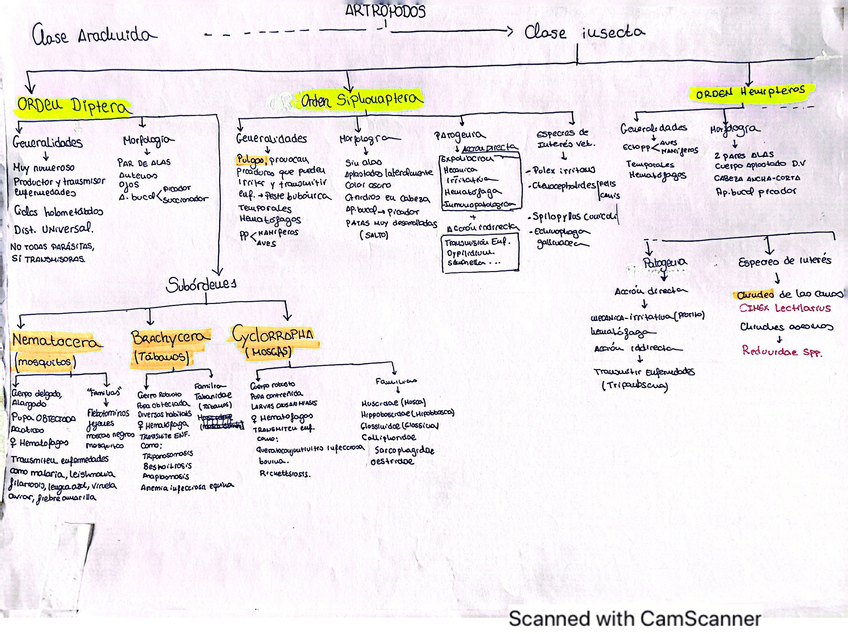 ARTRÓPODOS
Clase Arácnida
Clase insecta
ORDEN Diptera
Generalidades
Muy numeroso
Productor y transmisor
enfermedades
Dist. Universal.
NO TODAS PARÁSITAS,
SÍ TRANSMISORAS
Morfología
PAR DE ALAS
Antenas
Ojos
A. bucal
Picador
Succionador
Subórdenes
Nematocera
(mosquitos)
Cuerpo delgado,
Alargado
Pupa OBTECTADA
♀ Hematofagos
Transmiten enfermedades
como malaria, leishmania
filariosis, lengua azul, viruela
aviar, fiebre amarilla
"Familias"
Flebotominos
Jejenes
moscas negras
mosquitos
BRACHYCERA
(Tábanos)
Cuerpo Robusto
Pupa obtectada
Diversos hábitats
♀ Hematófaga
TRANSMITE ENF.
Como:
Triponosomosis
Besnoitiosis
Anaplasmosis
Anemia infecciosa equina
Familia
Tabanidae
(Tábanos)
CYCLORROPHA
(MOSCAS)
Cuerpo robusto
Pupa contenida
♀ Hematofagos
TRANSMITEN enf.
como:
Queratoconjuntivitis infecciosa
bovina.
Rickettsiosis.
Familias
Muscidae (Mosca)
Hippoboscidae (Hipobosca)
Glossinidae (Glossina)
Calliphoridae
Sarcophagidae
oestridae
Orden Siphonaptera
Generalidades
Pulgas, provocan
picaduras que pueden
irritar y transmitir
enf. → Peste bubónica
Temporales
Hematófagos
PP
MAMÍFEROS
AVES
Morfología
Sin alas
Aplastados lateralmente
Color oscuro
Ctenidios en cabeza
Ap. bucal → Picador
PATAS muy desarrolladas
(SALTO)
Patogenia
Acción directa
Expoliación
Mecánica
Irritativa
Hematófaga
Inmunopatológica
+
Acción indirecta
Transmisión Enf.
Dypilidium.
Salmonella...
Especies de
Interés Vet.
- Pulex irritans
- Ctenocephalides
felis
canis
- Spilopyllus Cuniculi
- Echidnophaga
gallinacea
ORDEN Hemípteros
Generalidades
ECTOPP
AVES
MAMÍFEROS
Temporales
Hematófagos
Morfología
2 PARES ALAS
Cuerpo aplastado D.V
CABEZA ANCHA-CORTA
Ap. bucal picador
Patogenia
Acción directa
MECÁNICA-irritativa (Prurito)
hematófaga
Acción indirecta
Transmitir Enfermedades
(Tripanosoma)
Especies de interés
Chinches de las camas
CIMEX Lectularius
Chinches asesinas
Reduvidae SPP.
Scanned with CamScanner